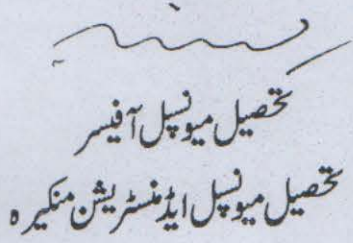 تحصیل میونسپل آفیسر
تحصیل میونسپل ایڈمنسٹریشن منکیرہ